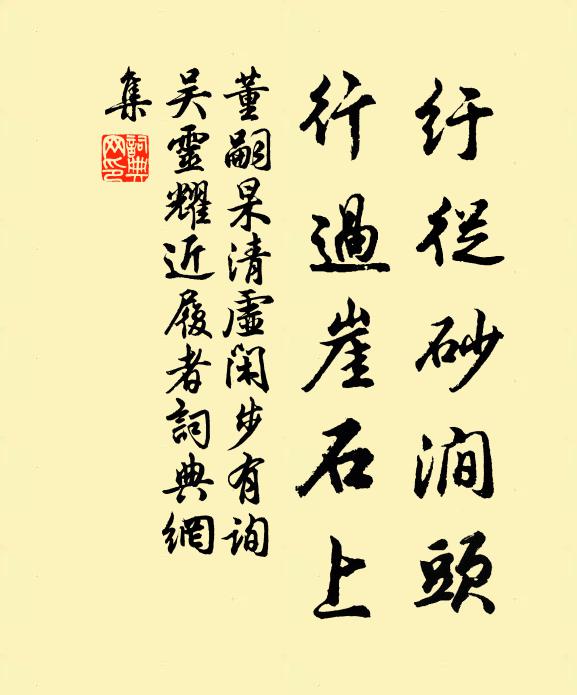 紆從砂澗頭
行過崖石上
董嗣杲清虛閑步有詢
吴靈耀近履者詞典網
集
詞典網印